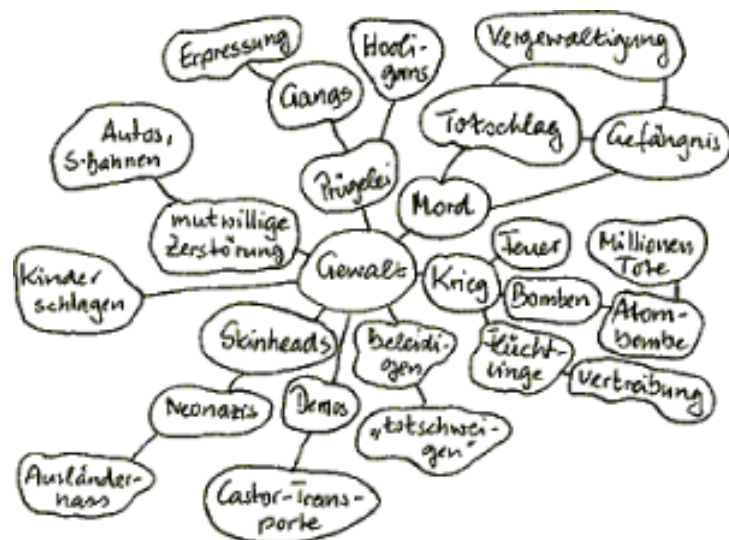 Erpressung
Hooli-
gans
Vergewaltigung
Gangs
Totschlag
Gefängnis
Autos,
S-Bahnen
Prügelei
Mord
mutwillige
Zerstörung
Gewalt
Krieg
Feuer
Millionen
Tote
Bomben
Atom-
bombe
Kinder
schlagen
Skinheads
Beleidi-
gen
Flücht-
linge
Vertreibung
Neonazis
Demos
„totschwei-
gen"
Ausländer-
hass
Castor-Trans-
porte